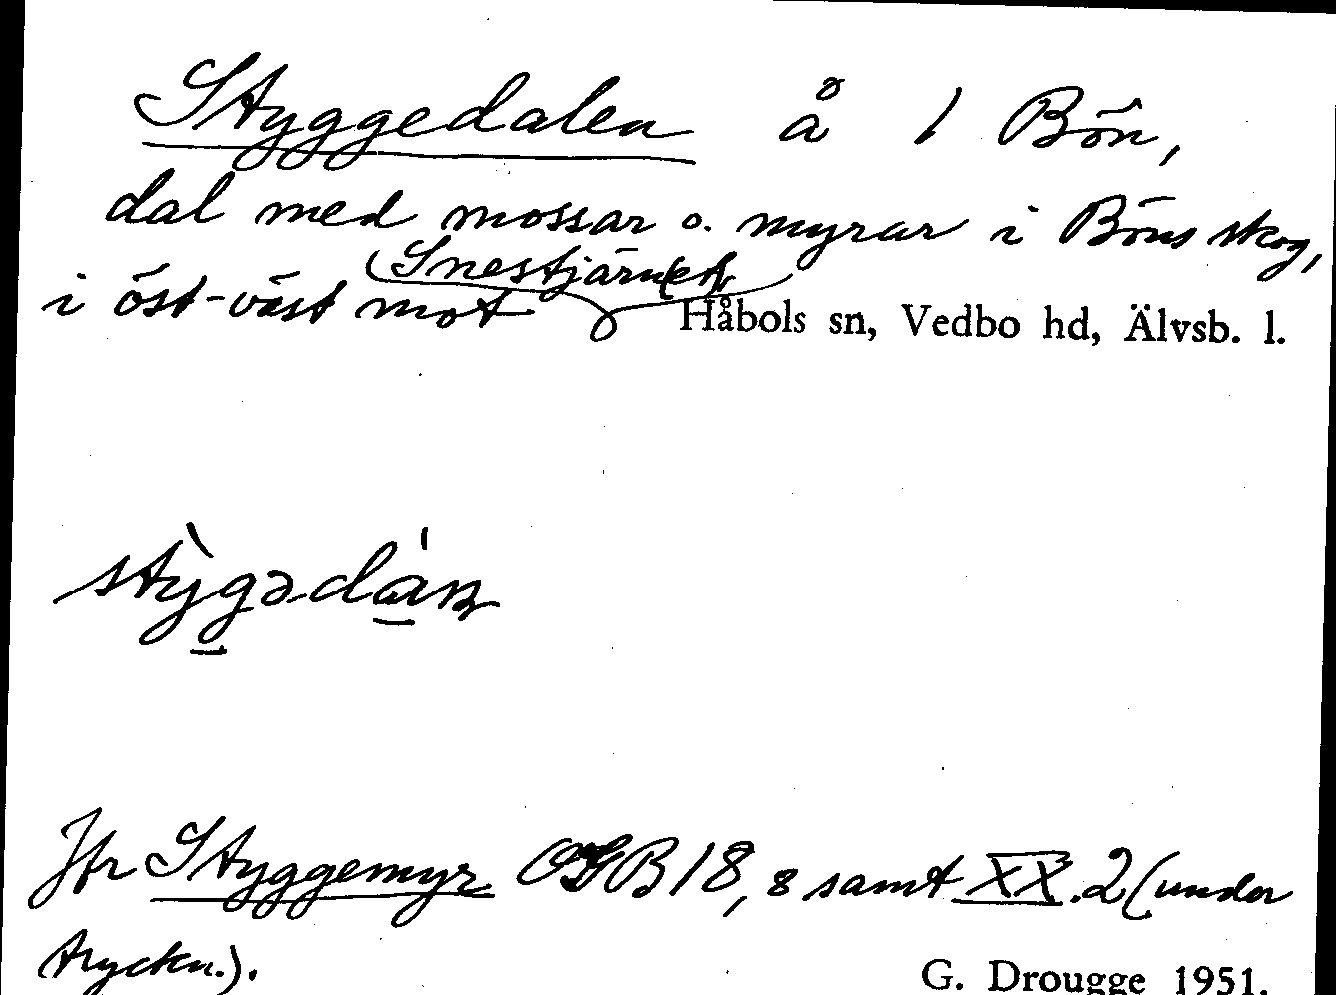 Styggedalen å 1 Bön,
dal med mossar o. myrar i Böns skog,
i öst-väst mot Snestjärnet
Håbols sn, Vedbo hd, Älvsb. l.
Jfr Styggemyr OGB 18, 8 samt XX.2 (under
tryckn.).
G. Drougge 1951.